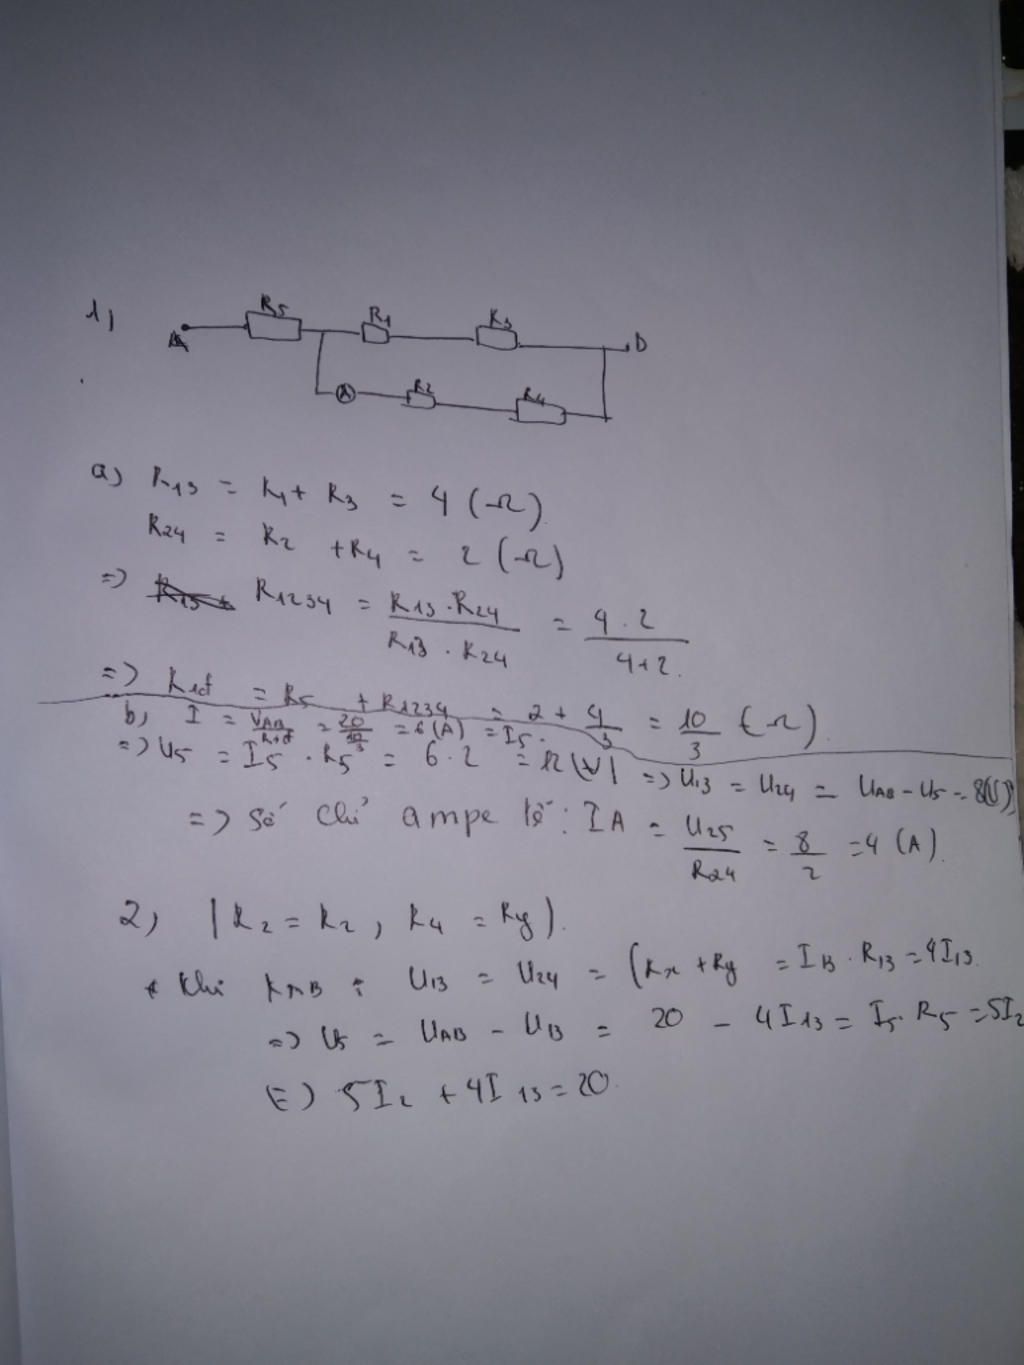 1)
R5 R1 R3
A B
A R2 R4
a) R13 = R1 + R3 = 4 (Ω)
R24 = R2 + R4 = 2 (Ω)
=> R1234 = R13 . R24 / R13 . R24 = 4 . 2 / 4+2.
=> Rtđ = R5 + R1234 = 2 + 4/3 = 10/3 (Ω).
b) I = UAB/Rtđ = 20/10/3 = 6 (A) = I5.
=> U5 = I5 . R5 = 6 . 2 = 12 (V) => U13 = U24 = UAB - U5 = 8(V)
=> Số chỉ ampe kế: IA = U25/R24 = 8/2 = 4 (A).
2) (R2 = Rx, R4 = Ry).
* Khi : U13 = U24 = (Rx + Ry = I13 . R13 = 4I13.
=> U5 = UAB - U13 = 20 - 4I13 = I5 . R5 = 5I2
(=) 5I2 + 4I13 = 20.